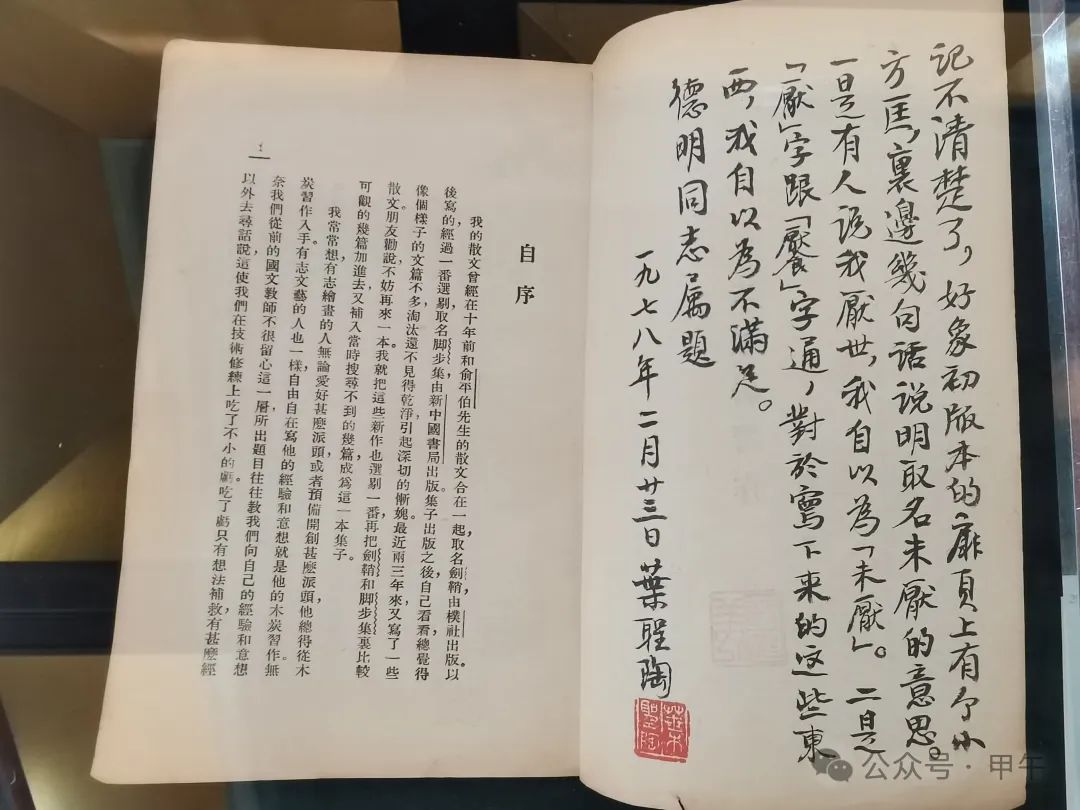 記不清楚了，好象初版本的扉頁上有个小
方匡，裏邊幾句話説明取名未厭的意思。
一是有人説我厭世，我自以為「未厭」。二是
「厭」字跟「饜」字通，對於寫下来的这些東
西，我自以為不滿足。
德明同志属題
一九七八年二月廿三日葉聖陶
葉聖陶
自序
我的散文曾經在十年前和俞平伯先生的散文合在一起，取名劍鞘由樸社出版。以
後寫的，經過一番選剔取名脚步集由新中國書局出版。集子出版之後，自己看看總覺得
像個樣子的文篇不多，淘汰還不見得乾淨，引起深切的慚媿。最近兩三年來又寫了一些
散文，朋友勸說不妨再來一本。我就把這些新作也選剔一番，再把劍鞘和脚步集裏比較
可觀的幾篇加進去，又補入當時搜尋不到的幾篇，成爲這一本集子。
我常常想有志繪畫的人無論愛好甚麽派頭，或者預備開創甚麽派頭，他總得從木
炭習作入手。有志文藝的人也一樣，自由自在寫他的經驗和意想就是他的木炭習作。無
奈我們從前的國文教師不很留心這一層，所出題目往往教我們向自己的經驗和意想
以外去尋話說，這使我們在技術修練上吃了不小的虧。吃了虧只有想法補救，有甚麽經
1
公众号·甲午